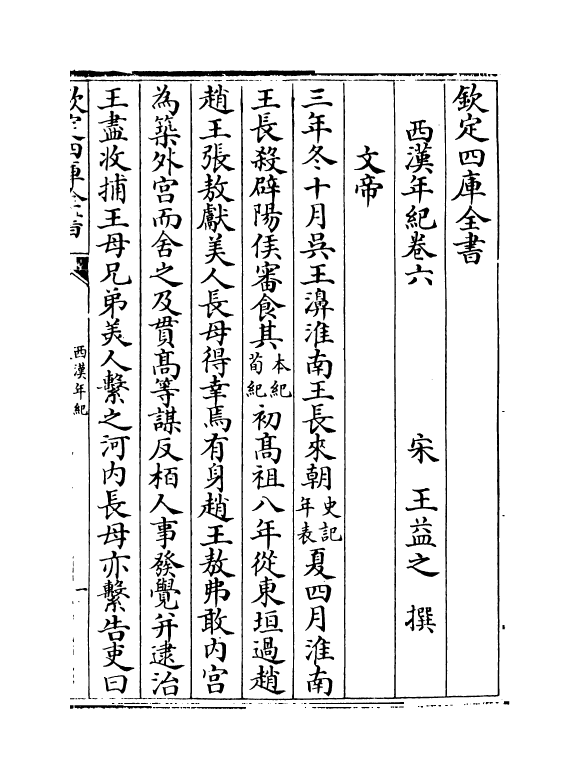 欽定四庫全書
西漢年紀卷六
宋 王益之 撰
文帝
三年冬十月吳王濞淮南王長來朝史記年表夏四月淮南
王長殺辟陽侯審食其本紀荀紀初髙祖八年從東垣過趙
趙王張敖獻美人長母得幸焉有身趙王敖弗敢内宮
為築外宮而舍之及貫髙等謀反栢人事發覺并逮治
王盡收捕王母兄弟美人繫之河内長母亦繫告吏曰
欽定四庫全書
西漢年紀
一